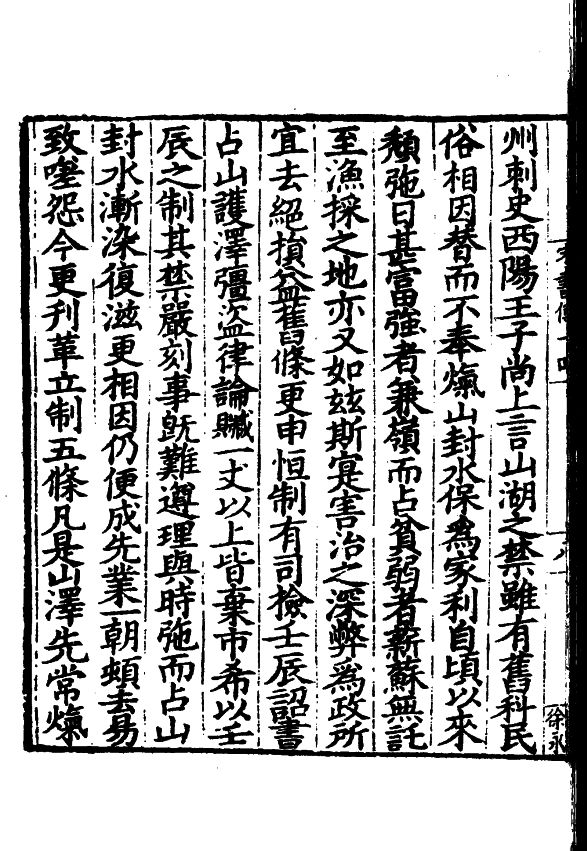 州刺史西陽王子尚上言山湖之禁雖有舊科民
俗相因替而不奉熂山封水保爲家利自頃以來
頹弛日甚富強者兼嶺而占貧弱者薪蘇無託
至漁採之地亦又如茲斯寔害治之深弊爲政所
宜去絕損益舊條更申恒制有司檢壬辰詔書
占山護澤彊盜律論贓一丈以上皆棄市希以壬
辰之制其禁嚴刻事旣難遵理與時弛而占山
封水漸染復滋更相因仍便成先業一朝頓去易
致嗟怨今更刊革立制五條凡是山澤先常熂
徐永